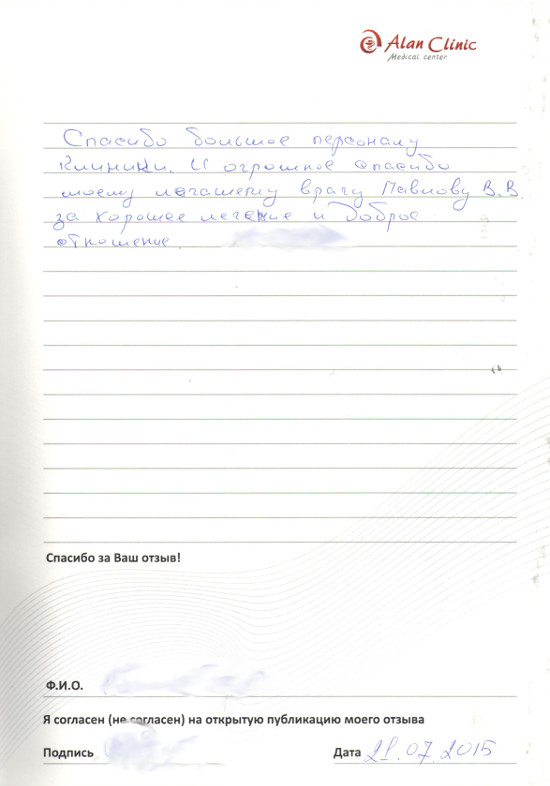 Alan Clinic
Medical center
Спасибо большое персоналу
Клиники. И огромное спасибо
моему лечащему врачу Павлову В.В.
за хорошее лечение и доброе
отношение.
Спасибо за Ваш отзыв!
Ф.И.О.
Я согласен (не согласен) на открытую публикацию моего отзыва
Подпись Дата 21.07.2015